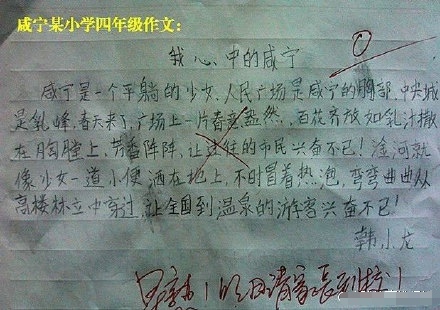 咸宁某小学四年级作文：
我心中的咸宁
咸宁是一个平躺的少女，人民广场是咸宁的胸部，中央城
是乳峰，春天来了，广场上一片春意盎然，百花齐放如乳汁撒
在胸膛上，芳香阵阵，让过往的市民兴奋不已！淦河就
像少女一道小便洒在地上，不时冒着热泡，弯弯曲曲从
高楼林立中穿过，让全国到温泉的游客兴奋不已！
韩小龙
明日请家长到校！